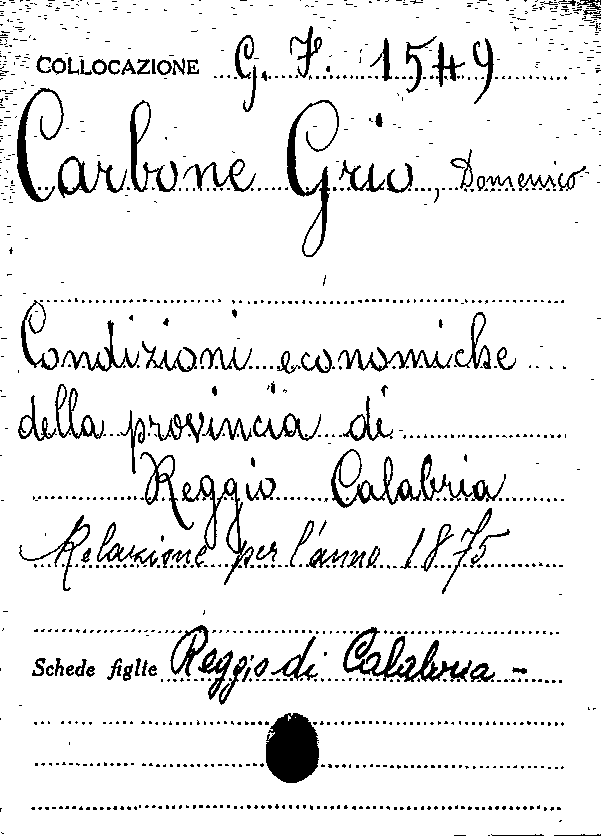 COLLOCAZIONE G. F. 1549
Carbone Grio, Domenico
Condizioni economiche
della provincia di
Reggio Calabria
Relazione per l'anno 1875
Schede figlie Reggio di Calabria -